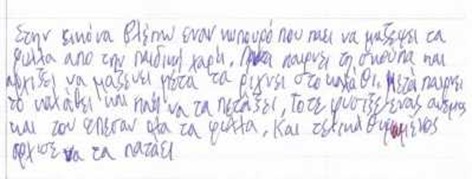 Στην εικόνα βλέπω εναν κηπουρό που παει να μαζεψει τα
φυλλα απο την παιδικη χαρα, παιρνει τη σκουπα και
αρχιζει να μαζευει μετα τα ριχνει στο καλαθι. Μετά παιρνει
το καλαθι και παει να τα πεταξει, Τοτε φυσιξε ενας αερας
και του επεσαν ολα τα φυλλα, Και τελικα θυμωμένος
αρχισε να τα παταει